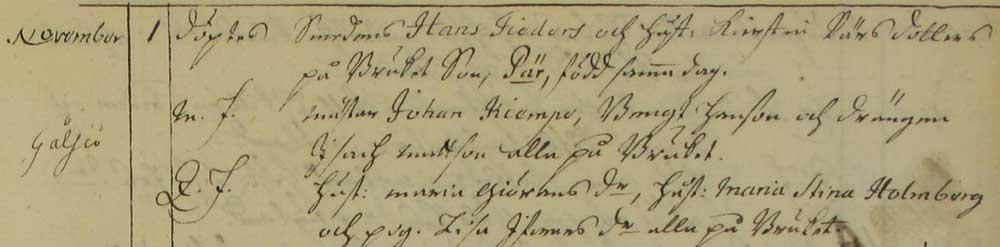 November 1 döptes Smedens Hans Fieders och hust: Kierstin Pärs dotters
på Bruket Son, Pär, född samma dag.
m. f. mästar Johan Kiempe, Bengt Hanson och drängen
Gålsjö Isach Mattson alla på Bruket.
Q. f. hust: Maria Giörans dr, hust: Maria Stina Holmberg
och pig. Lisa dr alla på Bruket.